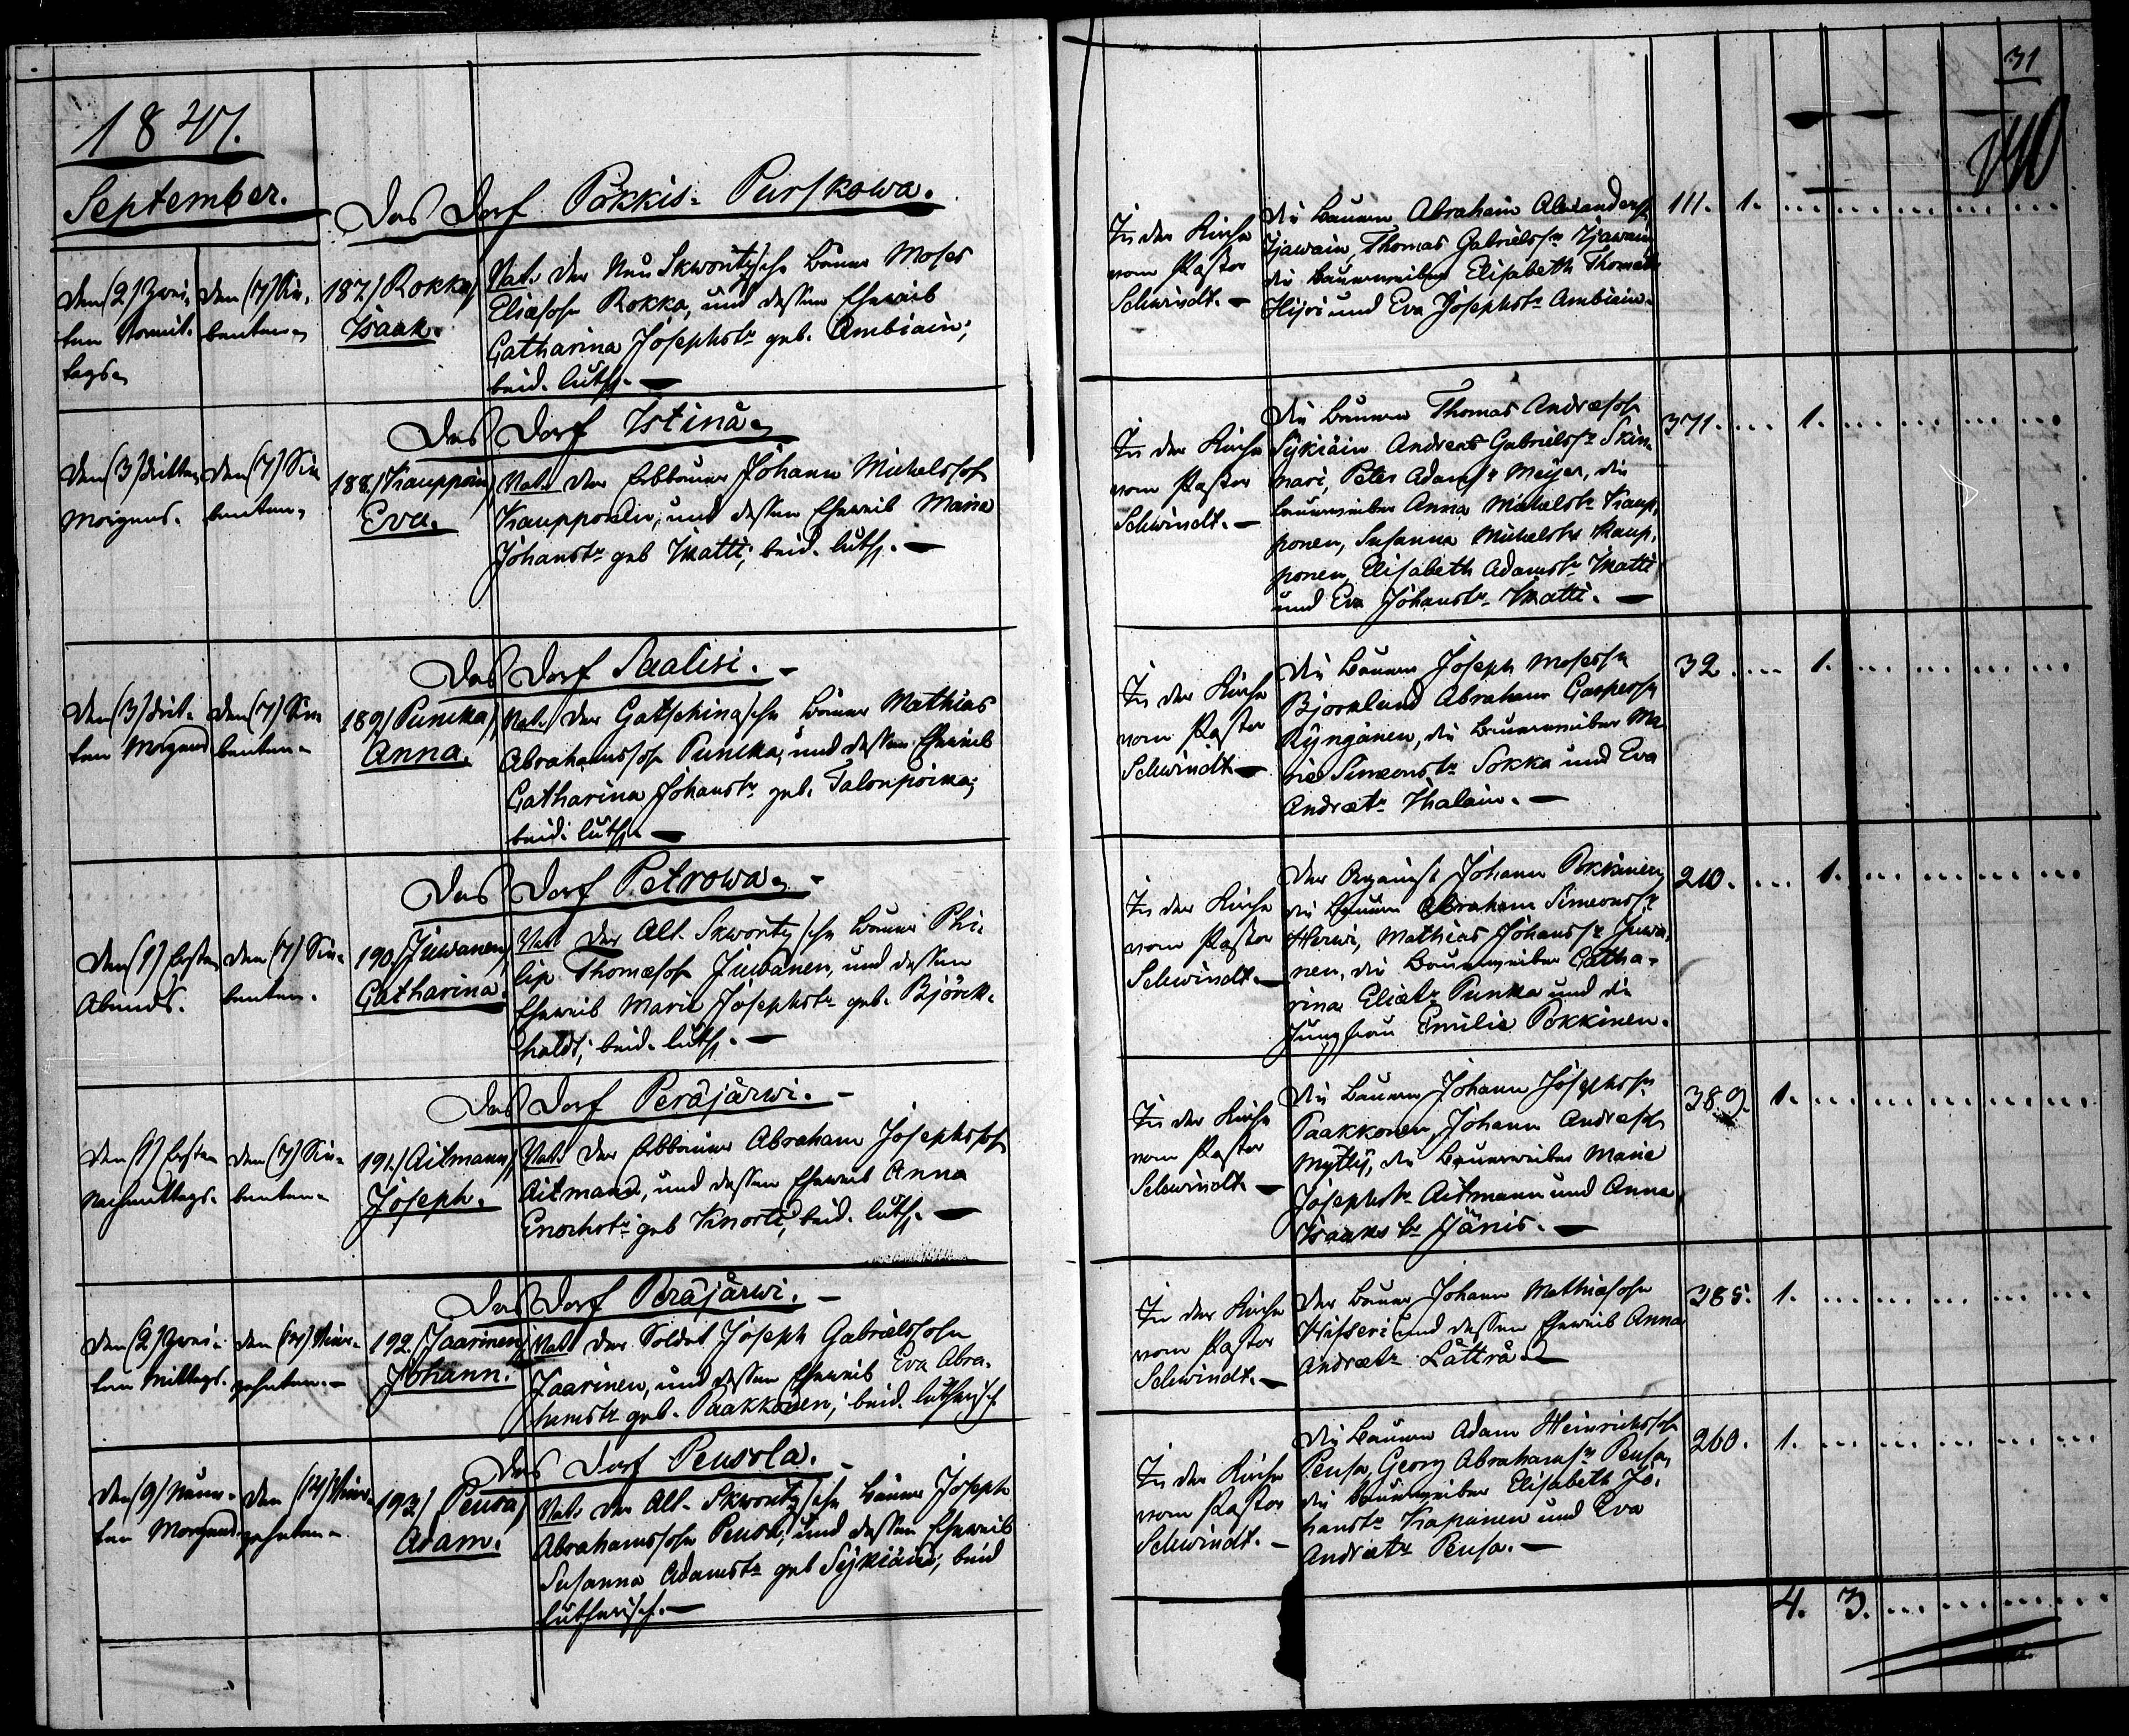 1847.
September.
Das Dorf Pökkis-Purskowa.
Den (2) Zwei-
ten Vormit-
tags.
Den (7) Sie-
benten.
187./ Rokka,
Isaak.
Vat. Der Neu Skworitzsche Bauer Moses
Eliassohn Rokka, und dessen Eheweib
Catharina Josephstr. geb. Ambiain;
beid. luth. —
Das Dorf Istinä.
Den (3) dritten
Morgens.
Den (7) Sie-
benten.
188./ Kauppoin,
Eva.
Vat. Der Erbbauer Johann Michelssohn
und dessen Eheweib Maria
Johanstr. geb. Matti; beid. luth. —
Das Dorf Saalisi. —
Den (3) drit-
ten Morgens
Den (7) Sie-
benten.
189./ Punka,
Anna.
Vat. Der Gatschinasche Bauer Mathias
Abrahamssohn Punka, und dessen Eheweib
Catharina Johanstr. geb. Talonpoika;
beid. luth. —
Das Dorf Petrowa. —
Den (1) Ersten
Abends.
Den (7) Sie-
benten.
190./ Juwanen,
Catharina.
Vat. Der Alt-Skworitzsche Bauer Phi-
lip Thomassohn Juwanen, und dessen
Eheweib Maria Josephstr. geb. Björck-
holdt; beid. luth. —
Das Dorf Peräjärwi. —
Den (1) Ersten
Nachmittags.
Den (7) Sie-
benten.
191./ Aitmann,
Joseph.
Vat. Der Erbbauer Abraham Josephssohn
Aitmann, und dessen Eheweib Anna
Enochstr. geb. Knorti; beid. luth. —
Das Dorf Peräjärwi. —
Den (2) Zwei-
ten Mittags.
Den (14) Vier-
zehnten. —
192./ Jaarinen,
Johann.
Vat. Der Soldat Joseph Gabrielssohn
Jaarinen, und dessen Eheweib Eva Abra-
hamstr. geb. Paakkonen; beid. lutherisch
Das Dorf Pensola. —
Den (9) Neun-
ten Morgens
Den (14) Vier-
zehnten.
193./ Pensa,
Adam.
Vat. Der Alt-Skworitzsche Bauer Joseph
Abrahamssohn Pensa, und dessen Eheweib
Susanna Adamstr. geb. Sykiäin; beid
lutherisch. —
31
In der Kirche
vom Pastor
Schwindt. —
Die Bauern Abraham Alexanders.
Thomas Gabrielss.
die Bauernweiber Elisabeth Thomastr.
und Eva Josephstr. Ambiain.
111. 1.
In der Kirche
vom Pastor
Schwindt. —
Die Bauern Thomas Andreassohn
Sykiäin, Andreas Gabrielss. Skin-
nari, Peter Adamss. Meyer, die
Bauernweiber Anna Michelstr. Kaup-
ponen, Susanna Michelstr. Kaup-
ponen, Elisabeth Adamstr. Matti
und Eva Johanstr. Matti. —
371. 1.
In der Kirche
vom Pastor
Schwindt. —
Die Bauern Joseph Mosess.
Bjorklund, Abraham Caspers.
die Bauernweiber Ma-
ria Simeonstr. Sokka und Eva
Andreastr. Ihalain. —
32. 1.
In der Kirche
vom Pastor
Schwindt. —
Der Organist Johann Pökkinen,
die Bauern Abraham Simeonss.
Herwi, Mathias Johanss. Juwa-
nen, die Bauernweiber Catha-
rina Eliastr. Punka und die
Jungfrau Emilie Pökkinen.
210. 1.
In der Kirche
vom Pastor
Schwindt. —
Die Bauern Johann Josephss.
Paakkonen, Johann Andreass.
die Bauernweiber Maria
Josephstr. Aitmann und Anna
Isaakstr. Jänis. —
389. 1.
In der Kirche
vom Pastor
Schwindt. —
Der Bauer Johann Mathiassohn
und dessen Eheweib Anna
Andreastr. Lätträ. —
385. 1.
In der Kirche
vom Pastor
Schwindt. —
Die Bauern Adam Heinrichssohn
Pensa, Georg Abrahamss. Pensa,
die Bauernweiber Elisabeth Jo-
hanstr. Kapanen und Eva
Andreastr. Pensa. —
260. 1.
4. 3.